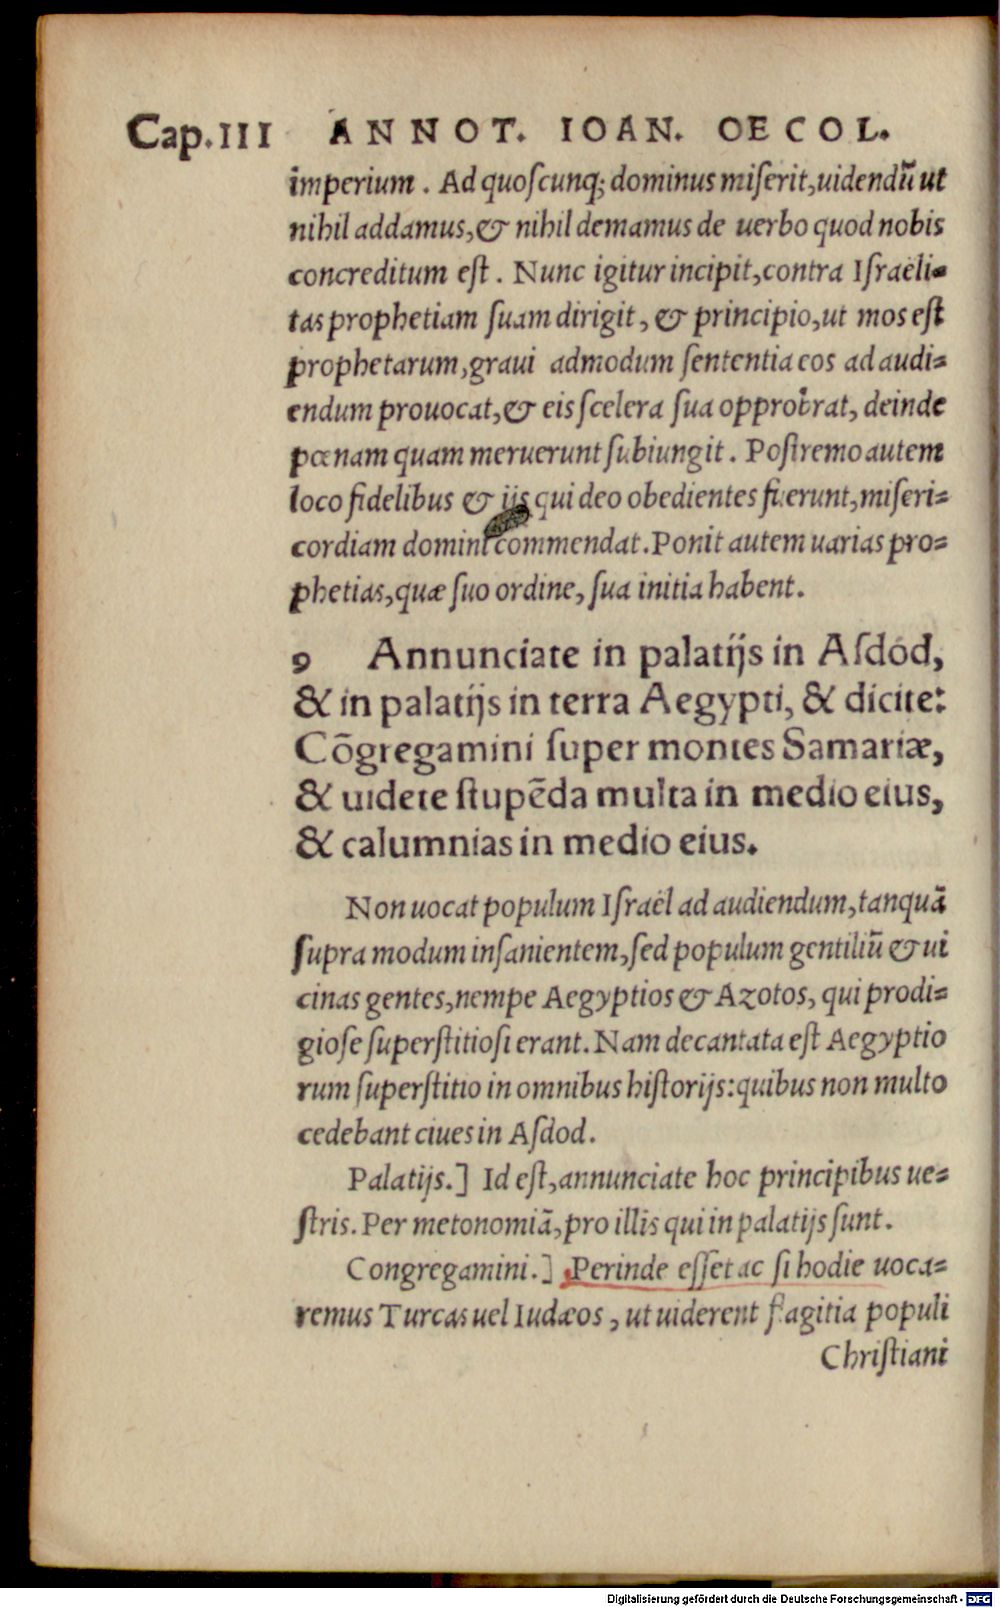 Cap.III ANNOT. IOAN. OECOL.
imperium. Ad quoſcunq; dominus miſerit,uidendũ ut
nihil addamus,& nihil demamus de uerbo quod nobis
concreditum eſt. Nunc igitur incipit,contra Iſraëli-
tas prophetiam ſuam dirigit, & principio,ut mos eſt
prophetarum,graui admodum ſententia eos ad audi-
endum prouocat,& eis ſcelera ſua opprobrat, deinde
pœnam quam meruerunt ſubiungit. Poſtremo autem
loco fidelibus & ijs qui deo obedientes fuerunt,miſeri-
cordiam domini commendat.Ponit autem uarias pro-
phetias,quæ ſuo ordine, ſua initia habent.
9 Annunciate in palatijs in Aſdod,
& in palatijs in terra Aegypti, & dicite:
Cõgregamini ſuper montes Samariæ,
& uidete ſtupẽda multa in medio eius,
& calumnias in medio eius.
Non uocat populum Iſraël ad audiendum,tanquã
ſupra modum inſanientem,ſed populum gentiliũ & ui
cinas gentes,nempe Aegyptios & Azotos, qui prodi-
gioſe ſuperſtitioſi erant. Nam decantata eſt Aegyptio
rum ſuperſtitio in omnibus hiſtorijs:quibus non multo
cedebant ciues in Aſdod.
Palatijs.] Id eſt,annunciate hoc principibus ue-
ſtris. Per metonomiã,pro illis qui in palatijs ſunt.
Congregamini.] Perinde eſſet ac ſi hodie uoca-
remus Turcas uel Iudæos, ut uiderent flagitia populi
Chriſtiani
Digitalisierung gefördert durch die Deutsche Forschungsgemeinschaft - DFG